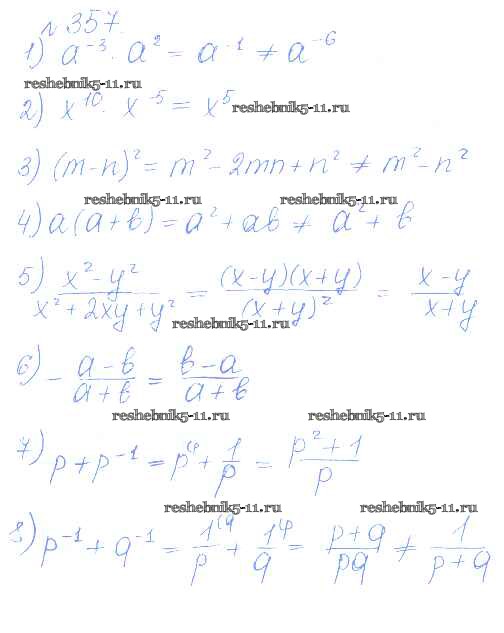 № 357.
1) a⁻³ · a² = a⁻¹ ≠ a⁻⁶
reshebnik5-11.ru
2) x¹⁰ · x⁻⁵ = x⁵
reshebnik5-11.ru
3) (m-n)² = m² - 2mn + n² ≠ m² - n²
reshebnik5-11.ru reshebnik5-11.ru
4) a(a+b) = a² + ab ≠ a² + b
5) (x² - y²)/(x² + 2xy + y²) = ((x-y)(x+y))/((x+y)²) = (x-y)/(x+y)
reshebnik5-11.ru
6) -(a-b)/(a+b) = (b-a)/(a+b)
reshebnik5-11.ru reshebnik5-11.ru
7) p + p⁻¹ = p⁽ᵖ + 1/p = (p² + 1)/p
reshebnik5-11.ru reshebnik5-11.ru
8) p⁻¹ + q⁻¹ = 1⁽q/p + 1⁽ᵖ/q = (p+q)/(pq) ≠ 1/(p+q)